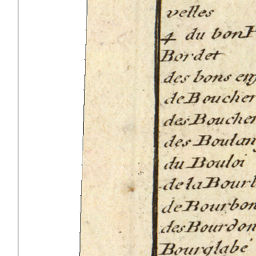 velles
4 du bon
Bordet
des bons
de Boucher
des Boucher
des Boulan
du Bouloi
de la Bour
de Bourbon
des Bourdon
Bourglabé